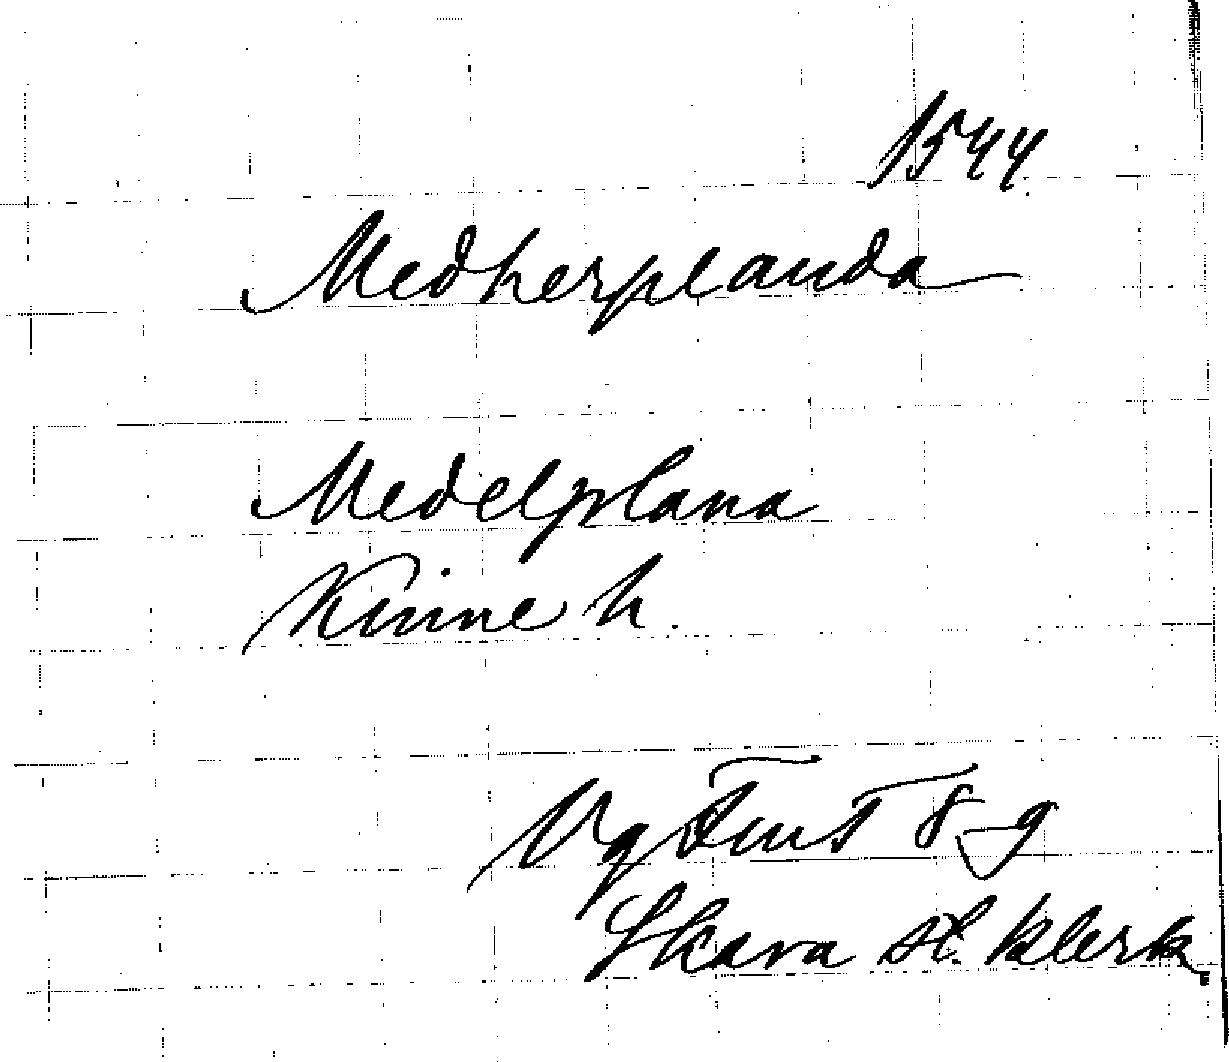 1544
Medherplanda
Medelplana
Kinne h.
Vg Fort 8-9
Skara st. klerk.